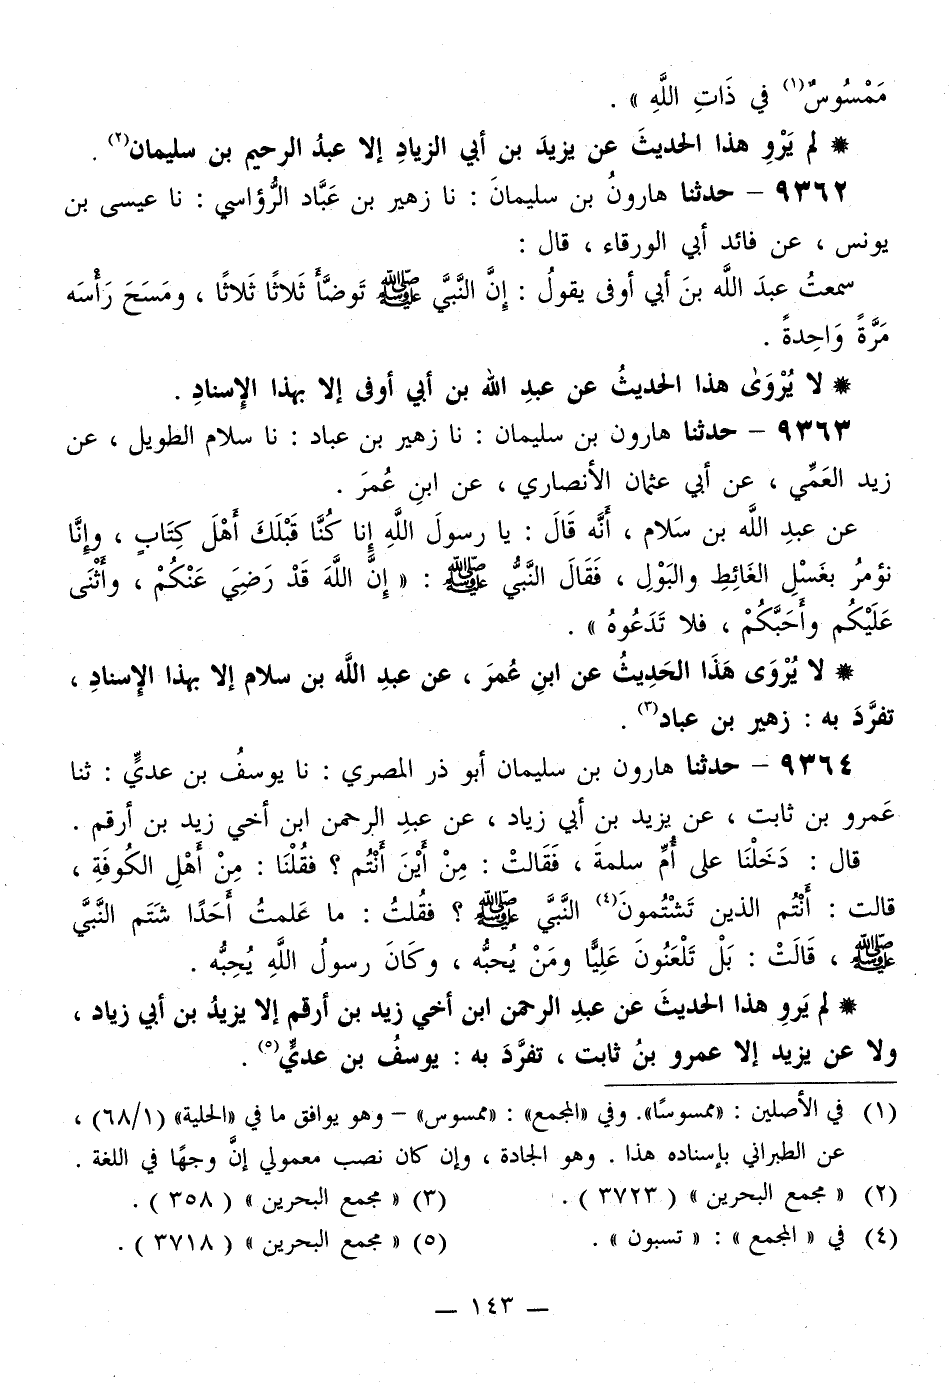 مَمْسُوسٌ(١) في ذَاتِ اللَّهِ » .
* لم يَرْوِ هذا الحديثَ عن يزيدَ بن أبي الزيادِ إلا عبدُ الرحيم بن سليمان(٢) .
٩٣٦٢ – حدثنا هارونُ بن سليمانَ : نا زهير بن عَبَّاد الرُّؤاسي : نا عيسى بن
يونس ، عن فائد أبي الورقاء ، قال :
سمعتُ عبدَ اللَّه بنَ أبي أوفى يقولُ : إِنَّ النَّبيَّ ﷺ تَوضَّأَ ثَلاثًا ثَلاثًا ، ومَسَحَ رَأْسَه
مَرَّةً وَاحِدةً .
* لا يُرْوَىٰ هذا الحديثُ عن عبدِ الله بن أبي أوفى إلا بهذا الإِسنادِ .
٩٣٦٣ – حدثنا هارون بن سليمان : نا زهير بن عباد : نا سلام الطويل ، عن
زيد العَمِّي ، عن أبي عثمان الأنصاري ، عن ابنِ عُمرَ .
عن عبدِ اللَّه بن سَلام ، أَنَّه قَالَ : يا رسولَ اللَّهِ إنا كُنَّا قَبْلَكَ أَهْلَ كِتَابٍ ، وإِنَّا
نؤمرُ بغَسْلِ الغَائِطِ والبَوْلِ ، فَقَالَ النَّبيُّ ﷺ : « إِنَّ اللَّهَ قَدْ رَضِيَ عَنْكُمْ ، وأَثْنَى
عَلَيْكُم وأَحَبَّكُمْ ، فلا تَدَعُوهُ » .
* لا يُرْوَى هَذَا الحَدِيثُ عن ابنِ عُمرَ ، عن عبدِ اللَّه بن سلام إلا بهذا الإِسنادِ ،
تفرَّدَ به : زهير بن عباد(٣) .
٩٣٦٤ – حدثنا هارون بن سليمان أبو ذر المصري : نا يوسفُ بن عديٍّ : ثنا
عَمرو بن ثابت ، عن يزيد بن أبي زياد ، عن عبدِ الرحمن ابن أخي زيد بن أرقم .
قال : دَخَلْنَا على أُمِّ سلمةَ ، فَقَالتْ : مِنْ أَيْنَ أَنْتُم ؟ فقُلْنَا : مِنْ أَهْلِ الكُوفَةِ ،
قالت : أَنْتُم الذين تَشْتُمونَ(٤) النَّبيَّ ﷺ ؟ فقُلتُ : ما عَلمتُ أَحَدًا شتَم النَّبيَّ
ﷺ ، قَالَتْ : بَلْ تَلْعَنُونَ عَلِيًّا ومَنْ يُحبُّه ، وكَانَ رسولُ اللَّهِ يُحِبُّه .
* لم يَروِ هذا الحديثَ عن عبدِ الرحمن ابن أخي زيد بن أرقم إلا يزيدُ بن أبي زياد ،
ولا عن يزيد إلا عمرو بنُ ثابت ، تفرَّدَ به : يوسفُ بن عديٍّ(٥) .
(١) في الأصلين : «ممسوسًا». وفي «المجمع» : «ممسوس» – وهو يوافق ما في «الحلية» (٦٨/١) ،
عن الطبراني بإسناده هذا . وهو الجادة ، وإن كان نصب معمولي إنَّ وجهًا في اللغة .
(٢) « مجمع البحرين » ( ٣٧٢٣ ) . (٣) « مجمع البحرين » ( ٣٥٨ ) .
(٤) في « المجمع » : « تسبون » . (٥) « مجمع البحرين » ( ٣٧١٨ ) .
– ١٤٣ –